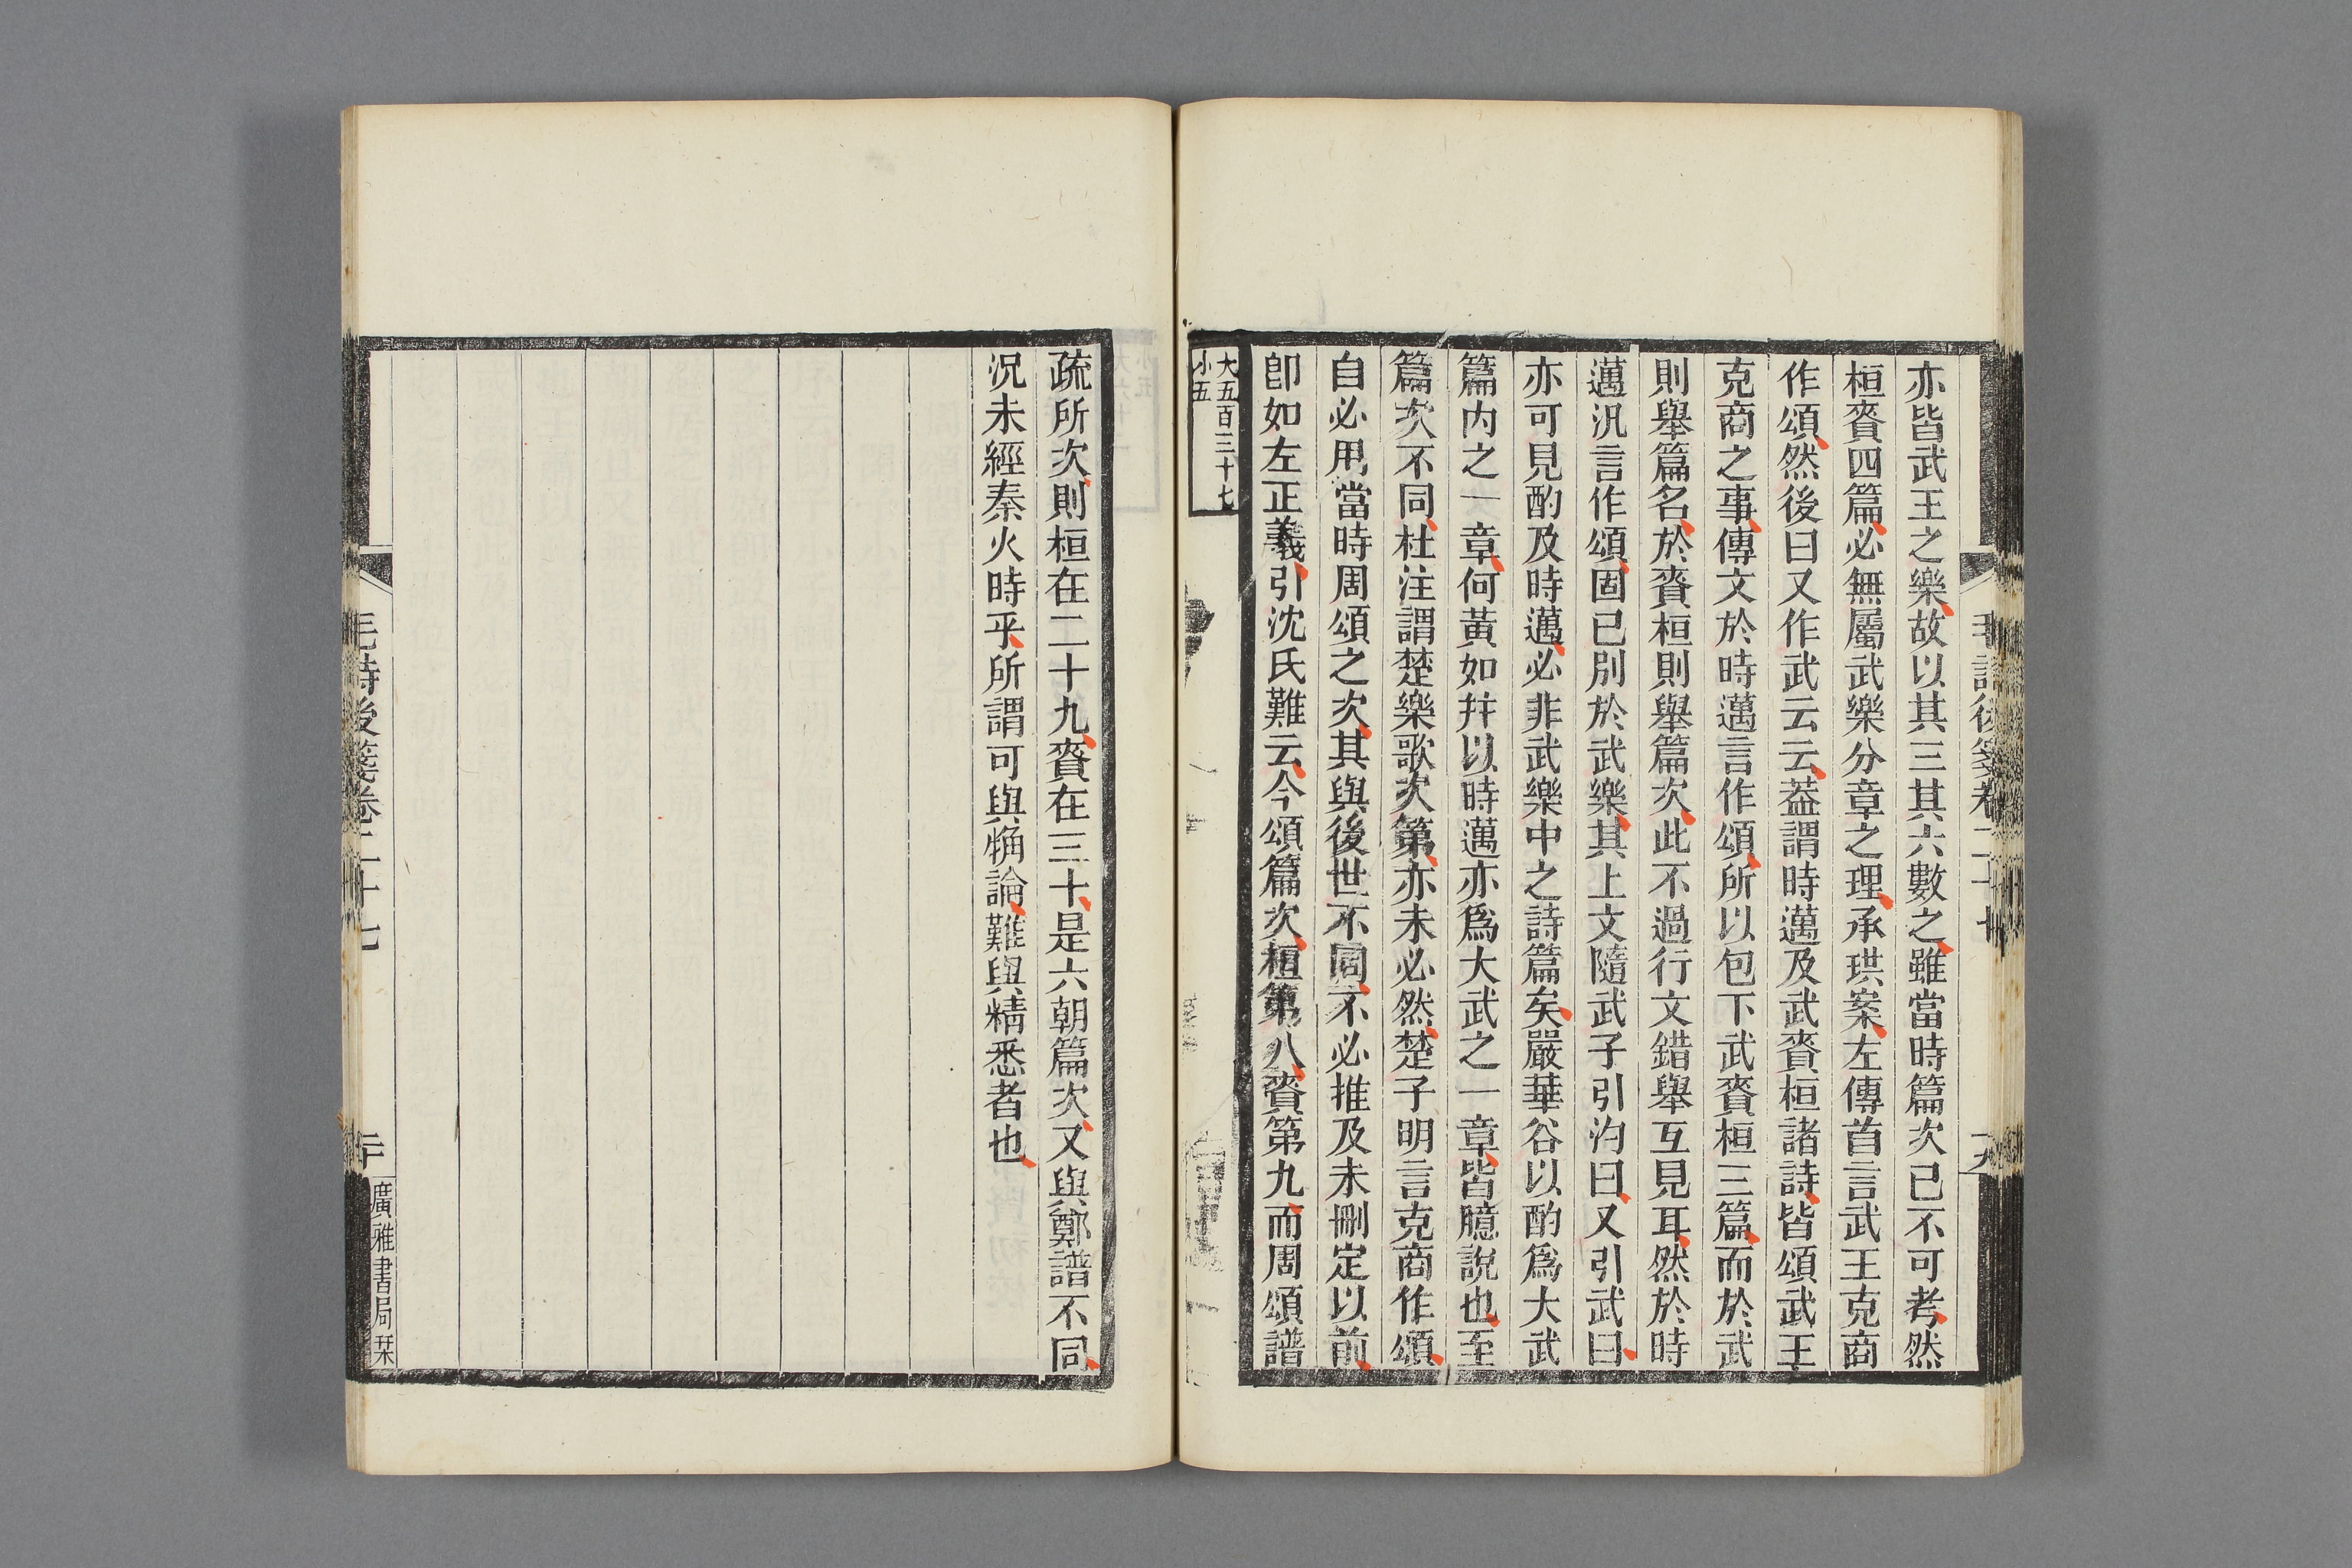 毛詩後箋卷二十七
十九
亦皆武王之樂故以其三其六數之雖當時篇次已不可考然
桓賚四篇必無屬武樂分章之理承珙案左傳首言武王克商
作頌然後曰又作武云云葢謂時邁及武賚桓諸詩皆頌武王
克商之事傳文於時邁言作頌所以包下武賚桓三篇而於武
則舉篇名於賚桓則舉篇次此不過行文錯舉互見耳然於時
邁汎言作頌固已別於武樂其上文隨武子引汋曰又引武曰
亦可見酌及時邁必非武樂中之詩篇矣嚴華谷以酌爲大武
篇内之一章何黃如幷以時邁亦爲大武之一章皆臆說也至
篇次不同杜注謂楚樂歌次第亦未必然楚子明言克商作頌
自必用當時周頌之次其與後世不同固不必推及未刪定以前
卽如左正義引沈氏難云今頌篇次桓第八賚第九而周頌譜
大五百三十七
小五
疏所次則桓在二十九賚在三十是六朝篇次又與鄭譜不同
況未經秦火時乎所謂可與觕論難與精悉者也
毛詩後箋卷二十七
二十
廣雅書局栞